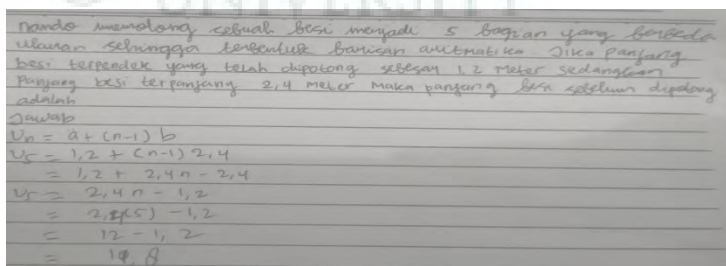 nando memotong sebuah besi menjadi 5 bagian yang berbeda
ukuran sehingga terbentuk barisan aritmatika Jika panjang
besi terpendek yang telah dipotong sebesar 1,2 meter sedangkan
Panjang besi terpanjang 2,4 meter maka panjang besi sebelum dipotong
adalah
Jawab
Un = a + (n-1) b
U5 = 1,2 + (n-1) 2,4
= 1,2 + 2,4 n - 2,4
U5 = 2,4 n - 1,2
= 2,4(5) - 1,2
= 12 - 1,2
= 10,8